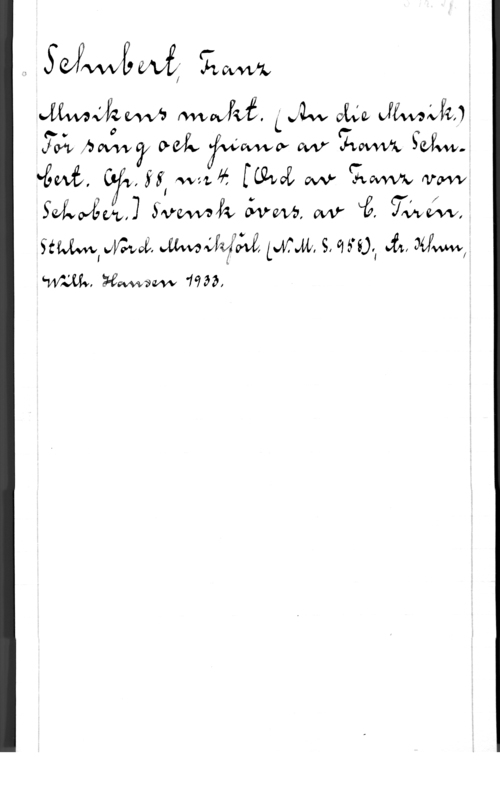 Schubert, Franz
Musikens makt. (An die Musik.)
För sång och piano av Franz Schu-
bert. Op. 88, n:r 4. [Ord av Franz von
Schober.] Svensk övers. av C. Tirén.
Sthlm, Nord. Musikförl. (N.M.S. 958); tr. Khvn,
Wilh. Hansen 1933.